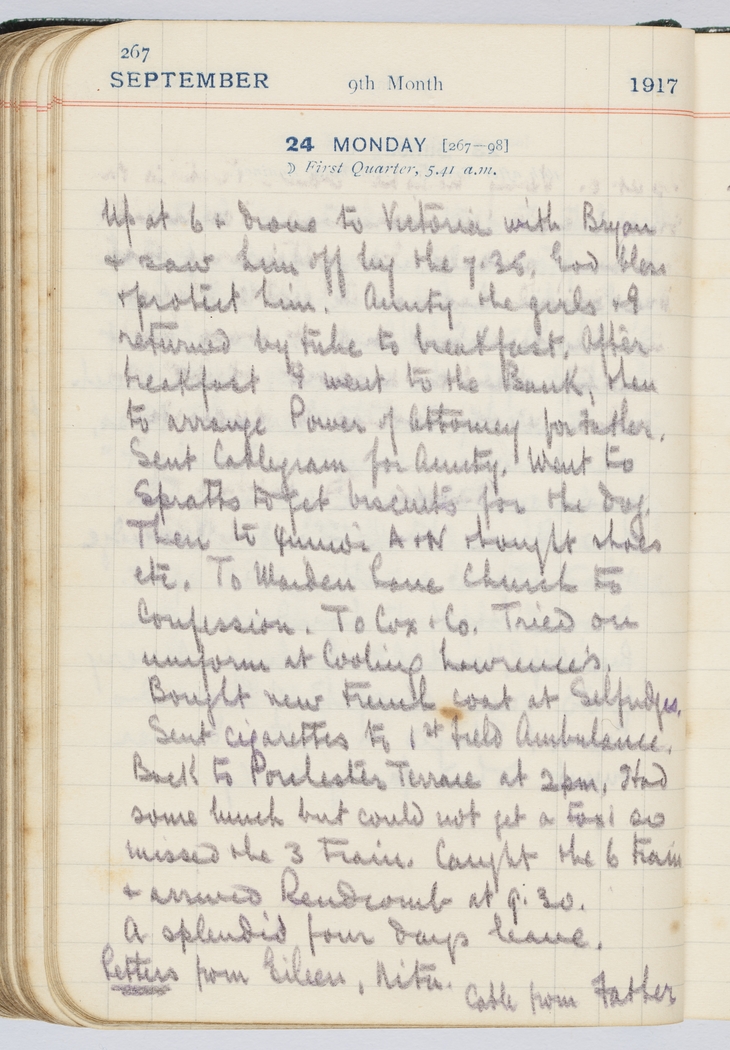 267
SEPTEMBER 9th Month 1917
24 MONDAY [267—98]
☽ First Quarter, 5.41 a.m.
Up at 6 & drove to Victoria with Bryan
& saw him off by the 7.35. God bless
& protect him. Aunty the girls & I
returned by tube to breakfast. After
breakfast I went to the Bank, then
to arrange Power of Attorney for Father.
Sent Cablegram for Aunty. Went to
Spratts to get biscuits for the dog.
Then to A & N & bought shoes
etc. To Maiden Lane Church to
Confession. To Cox & Co. Tried on
uniform at Cooling Lawrence's.
Bought new trench coat at Selfridges.
Sent cigarettes to 1st Field Ambulance.
Back to Porchester Terrace at 2pm. Had
some lunch but could not get a taxi so
missed the 3 train. Caught the 6 train
& arrived Rendcomb at 9.30.
A splendid four days leave.
Letters from Eileen, Rita.
Cable from Father